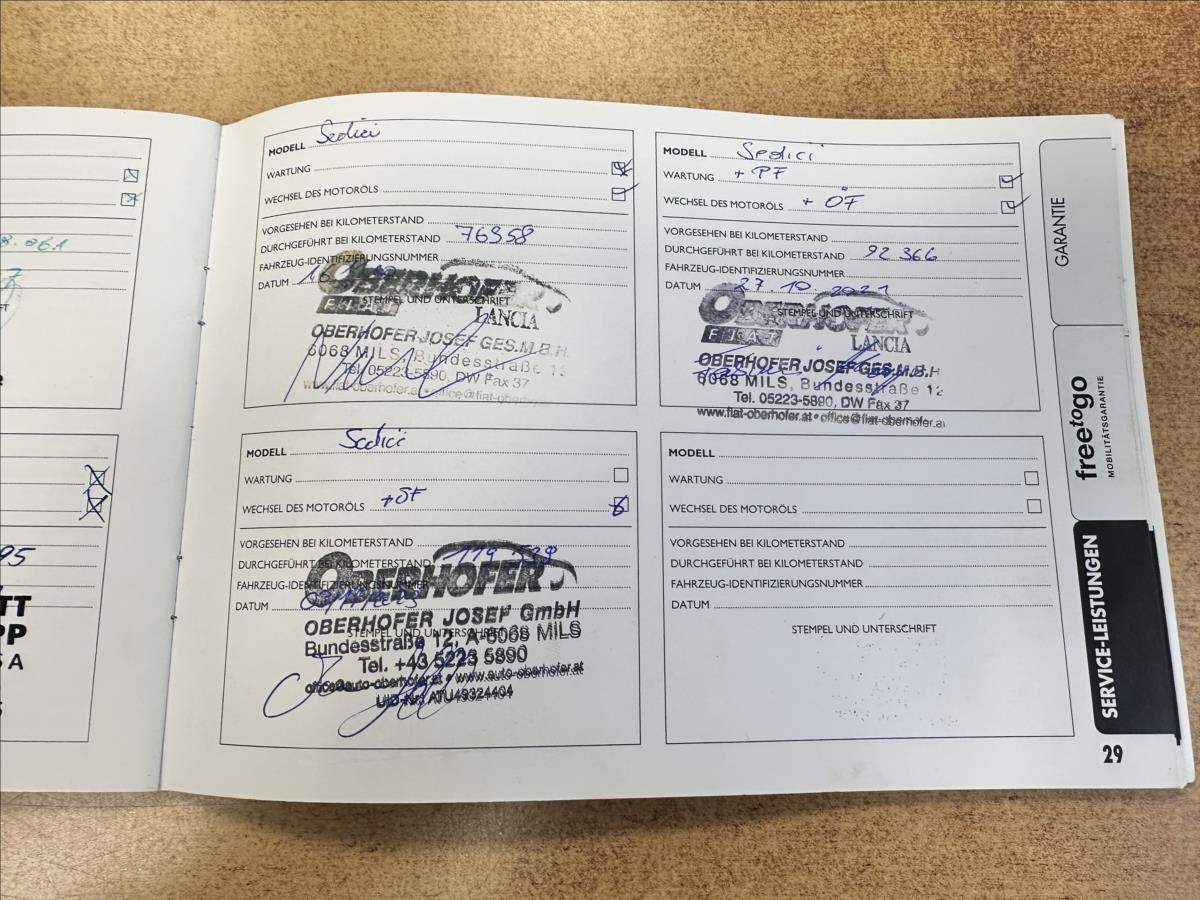 3.061
7
95
TT
PP
A
MODELL Sedici
WARTUNG
WECHSEL DES MOTORÖLS
VORGESEHEN BEI KILOMETERSTAND
DURCHGEFÜHRT BEI KILOMETERSTAND 76958
FAHRZEUG-IDENTIFIZIERUNGSNUMMER
DATUM 16
OBERHOFER
STEMPEL UND UNTERSCHRIFT
FIAT LANCIA
OBERHOFER JOSEF GES.M.B.H.
6068 MILS, Bundesstraße 12
Tel. 05223-5890, DW Fax 37
www.fiat-oberhofer.at • office@fiat-oberhofer
MODELL Sedici
WARTUNG + PF
WECHSEL DES MOTORÖLS + ÖF
VORGESEHEN BEI KILOMETERSTAND
DURCHGEFÜHRT BEI KILOMETERSTAND 92 366
FAHRZEUG-IDENTIFIZIERUNGSNUMMER
DATUM 27.10.2021
OBERHOFER
STEMPEL UND UNTERSCHRIFT
FIAT LANCIA
OBERHOFER JOSEF GES.M.B.H
6068 MILS, Bundesstraße 12
Tel. 05223-5890, DW Fax 37
www.fiat-oberhofer.at • office@fiat-oberhofer.at
MODELL Sedici
WARTUNG
WECHSEL DES MOTORÖLS +ÖF
VORGESEHEN BEI KILOMETERSTAND
DURCHGEFÜHRT BEI KILOMETERSTAND
FAHRZEUG-IDENTIFIZIERUNGSNUMMER
DATUM
OBERHOFER
OBERHOFER JOSEF GmbH
STEMPEL UND UNTERSCHRIFT
Bundesstraße 12, A-6068 MILS
Tel. +43 5223 5890
office@auto-oberhofer.at • www.auto-oberhofer.at
UID-Nr: ATU49324404
MODELL
WARTUNG
WECHSEL DES MOTORÖLS
VORGESEHEN BEI KILOMETERSTAND
DURCHGEFÜHRT BEI KILOMETERSTAND
FAHRZEUG-IDENTIFIZIERUNGSNUMMER
DATUM
STEMPEL UND UNTERSCHRIFT
GARANTIE
freetogo
MOBILITÄTSGARANTIE
SERVICE-LEISTUNGEN
29